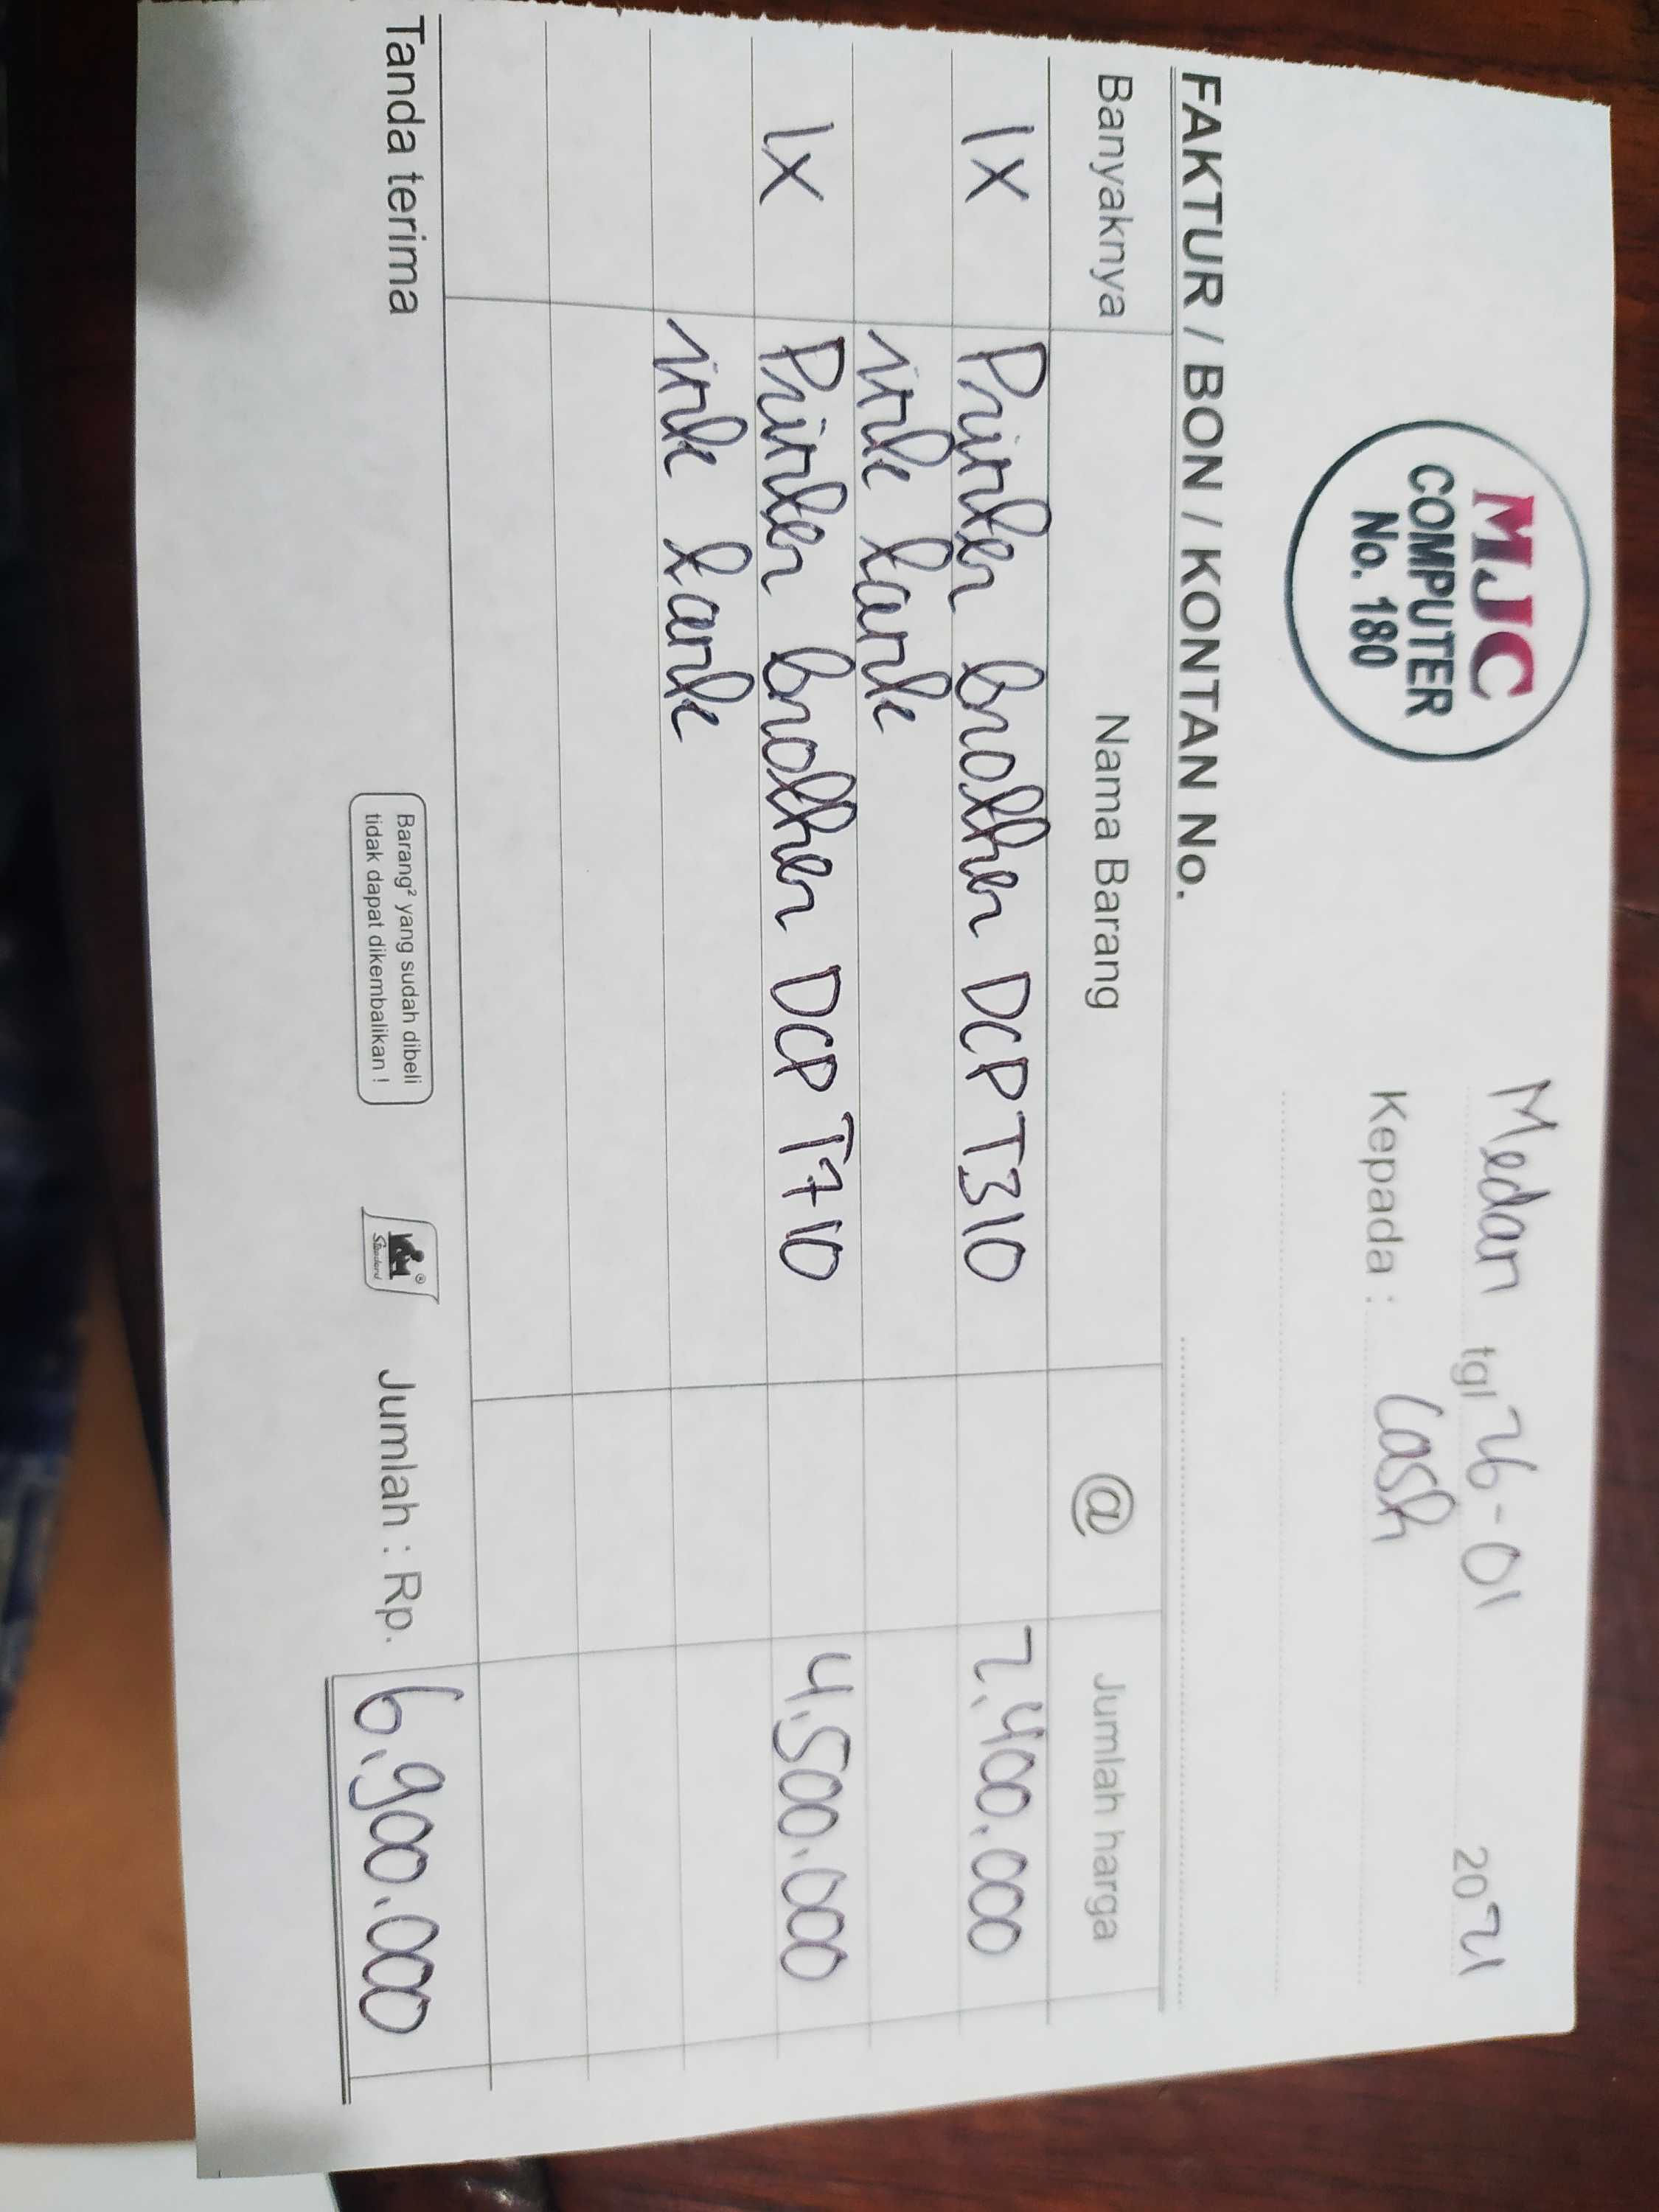 MJC
COMPUTER
No. 180
Medan tgl 26-01 2021
Kepada : Cash
FAKTUR / BON / KONTAN No.
Banyaknya Nama Barang @ Jumlah harga
1x Printer brother DCP T310 2.400.000
ink tank
1x Printer brother DCP T710 4.500.000
ink tank
Tanda terima
Barang² yang sudah dibeli
tidak dapat dikembalikan !
Standard
Jumlah : Rp. 6.900.000